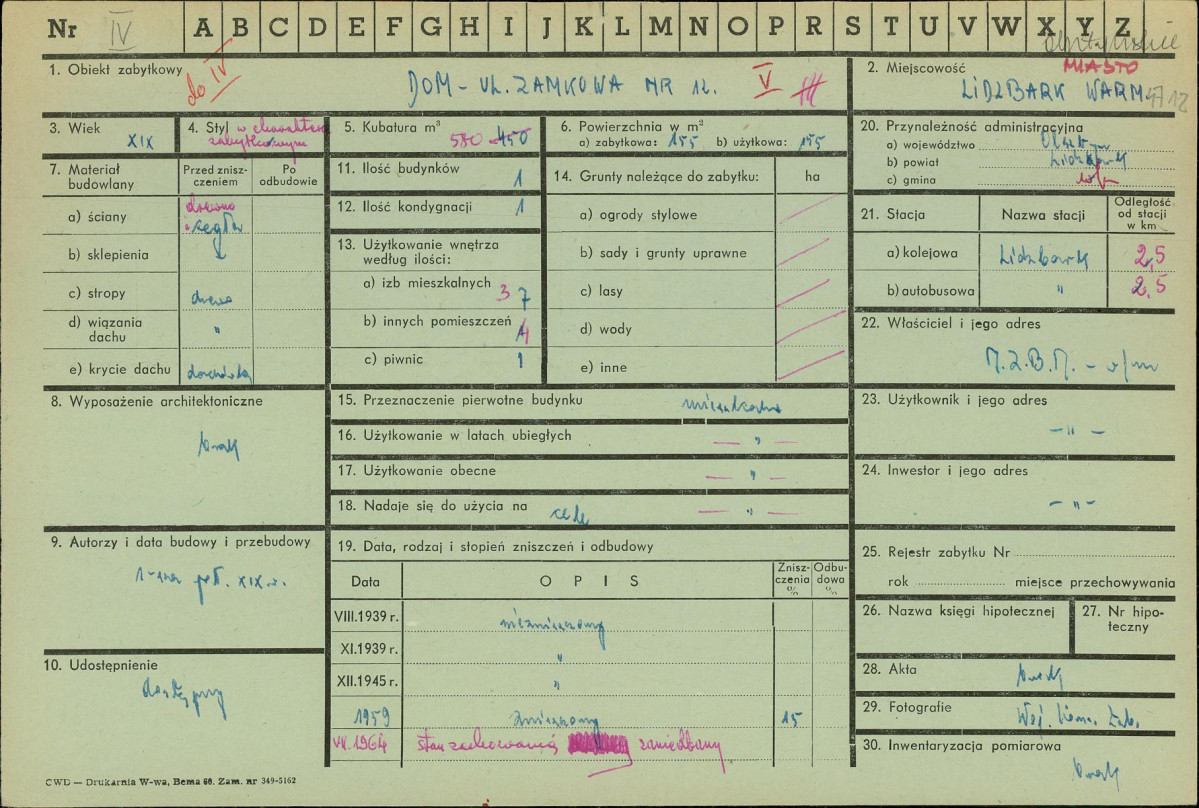 Nr IV A B C D E F G H I J K L M N O P R S T U V W X Y Z
1. Obiekt zabytkowy
do IV
DOM - UL. ZAMKOWA NR 12. V
2. Miejscowość MIASTO
LIDZBARK WARM.
3. Wiek
XIX
4. Styl w charakterze
zabytkowym
5. Kubatura m³
580 450
6. Powierzchnia w m²
a) zabytkowa: 155 b) użytkowa: 155
20. Przynależność administracyjna
a) województwo Olsztyn
b) powiat Lidzbark
c) gmina
7. Materiał
budowlany
Przed znisz-
czeniem
Po
odbudowie
a) ściany drewno
i cegła
b) sklepienia
c) stropy drewno
d) wiązania
dachu "
e) krycie dachu dachówka
11. Ilość budynków 1
12. Ilość kondygnacji 1
13. Użytkowanie wnętrza
według ilości:
a) izb mieszkalnych 3 7
b) innych pomieszczeń 4
c) piwnic 1
14. Grunty należące do zabytku: ha
a) ogrody stylowe
b) sady i grunty uprawne
c) lasy
d) wody
e) inne
21. Stacja Nazwa stacji
Odległość
od stacji
w km
a) kolejowa Lidzbark 2,5
b) autobusowa " 2,5
22. Właściciel i jego adres
M.Z.B.M. - w/m
8. Wyposażenie architektoniczne
brak
15. Przeznaczenie pierwotne budynku mieszkalne
16. Użytkowanie w latach ubiegłych — " —
17. Użytkowanie obecne — " —
18. Nadaje się do użycia na cele — " —
23. Użytkownik i jego adres
— " —
24. Inwestor i jego adres
— " —
9. Autorzy i data budowy i przebudowy
1-sza poł. XIX w.
10. Udostępnienie
dostępny
19. Data, rodzaj i stopień zniszczeń i odbudowy
Data OPIS
Znisz-
czenia
%
Odbu-
dowa
%
VIII.1939 r. niezniszczony
XI.1939 r. "
XII.1945 r. "
1959 zniszczony 15
VII.1964 stan zachowania zaniedbany
25. Rejestr zabytku Nr
rok miejsce przechowywania
26. Nazwa księgi hipotecznej
27. Nr hipo-
teczny
28. Akta brak
29. Fotografie Woj. Kons. Zab.
30. Inwentaryzacja pomiarowa
brak
CWD — Drukarnia W-wa, Bema 60. Zam. nr 349-5162